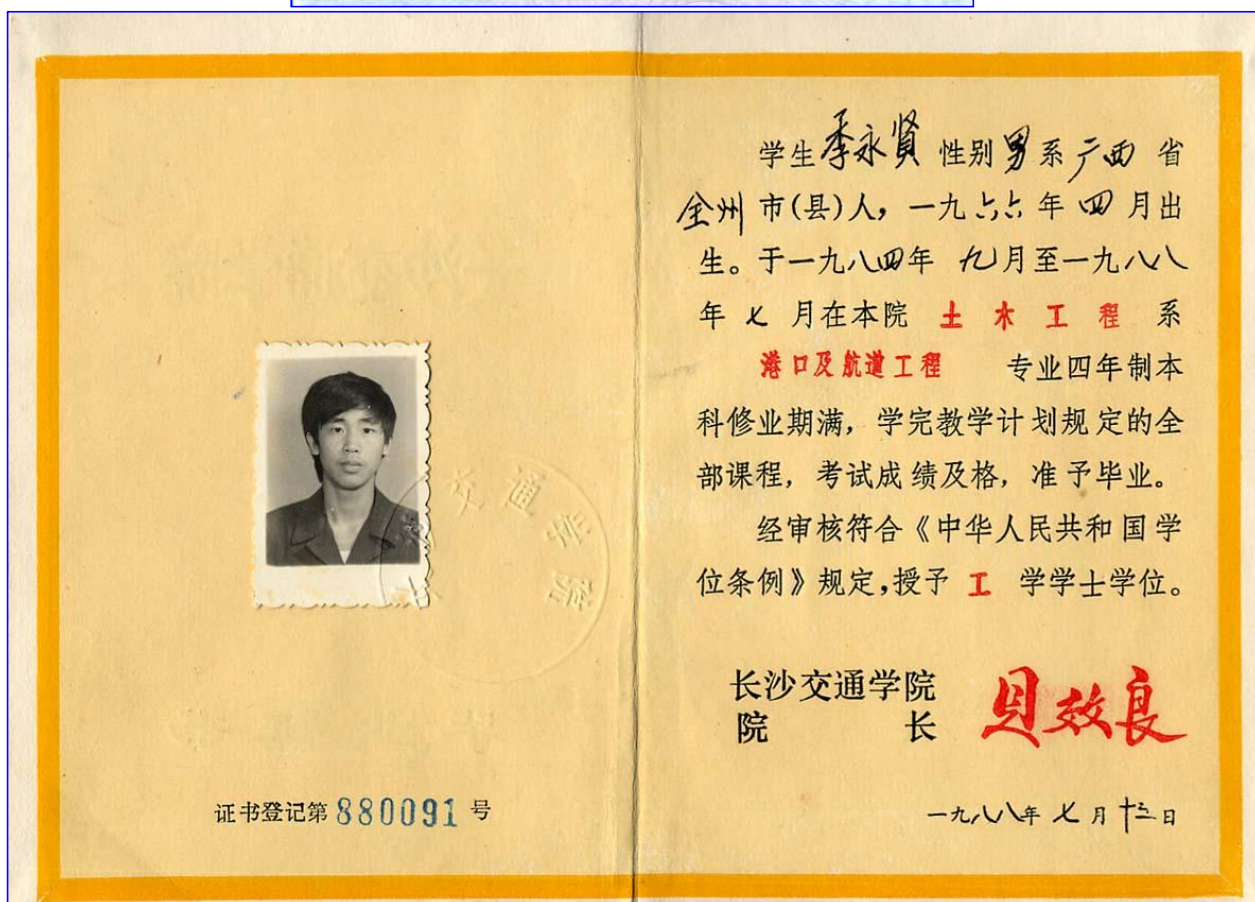 交通学院
证书登记第880091号
学生季永贤性别男系广西省
全州市(县)人，一九六六年四月出
生。于一九八四年九月至一九八八
年七月在本院土木工程系
港口及航道工程 专业四年制本
科修业期满，学完教学计划规定的全
部课程，考试成绩及格，准予毕业。
经审核符合《中华人民共和国学
位条例》规定,授予工学学士学位。
长沙交通学院
院长 贝效良
一九八八年七月十三日